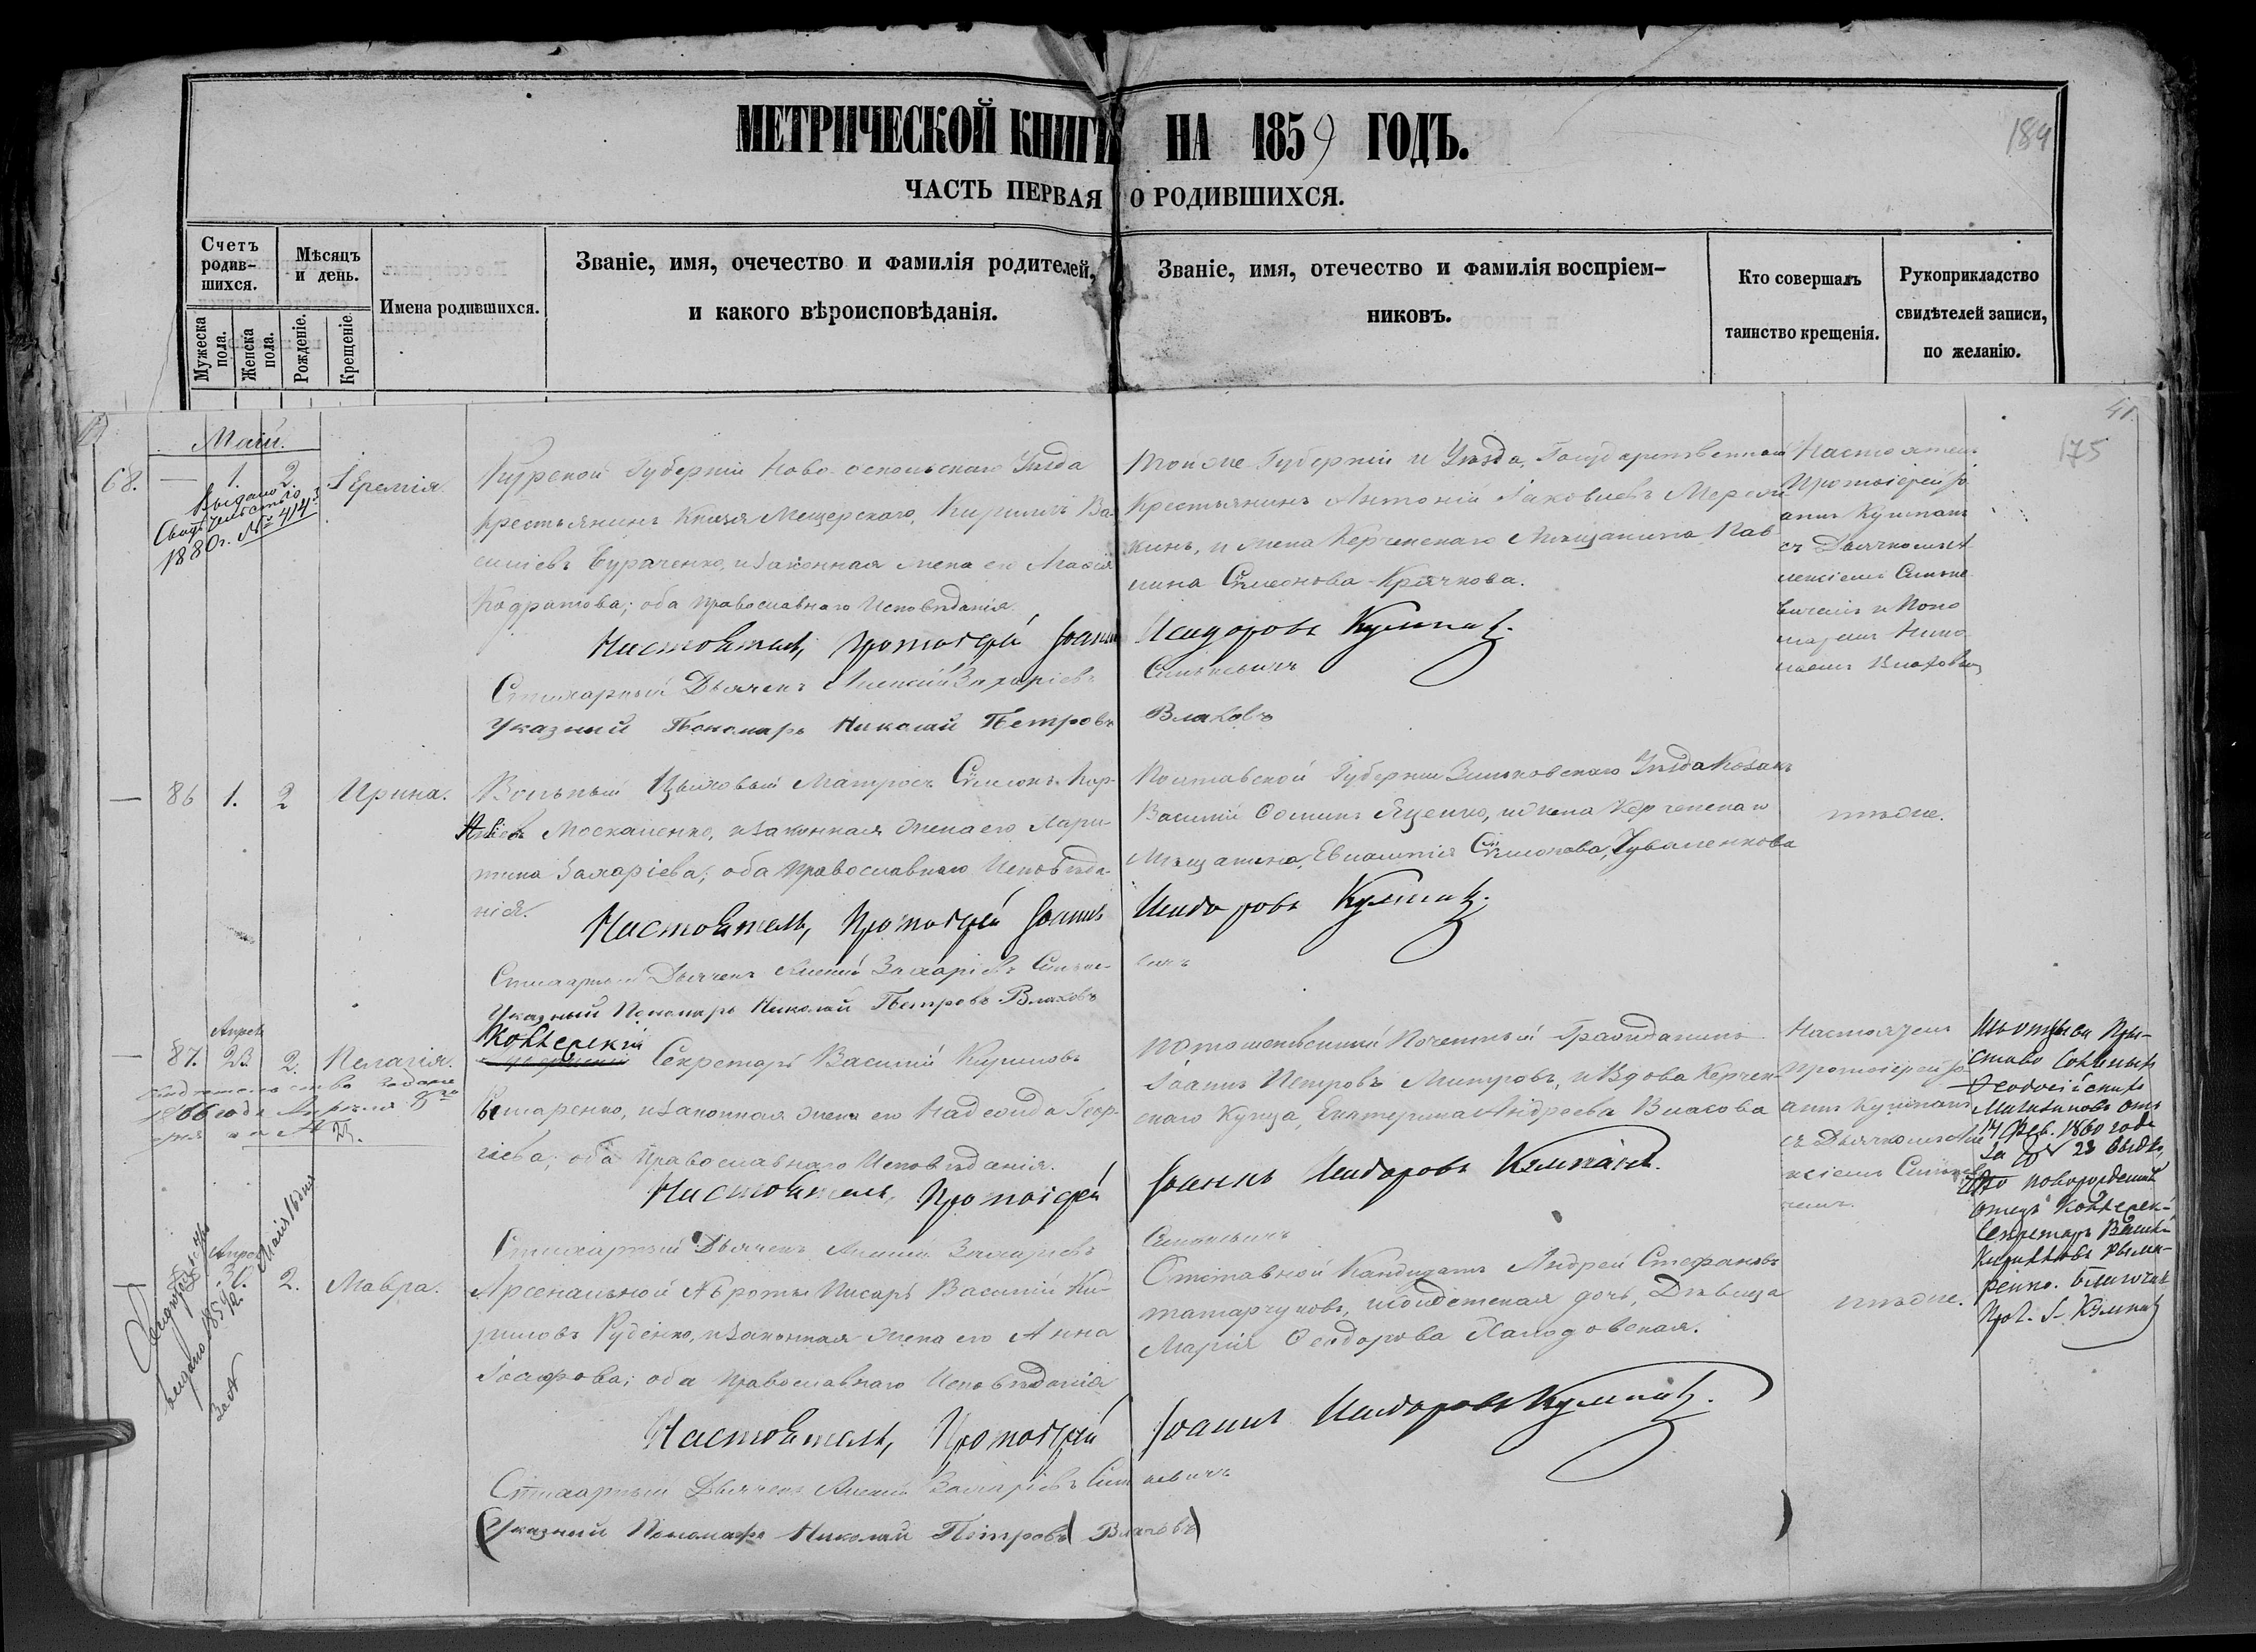 МЕТРИЧЕСКОЙ КНИГИ НА 1859 ГОДЪ.
184
ЧАСТЬ ПЕРВАЯ О РОДИВШИХСЯ.
Счетъ родив-шихся.
Мужеска пола.
Женска пола.
Мѣсяцъ и день.
Рожденіе.
Крещеніе.
Имена родившихся.
Званіе, имя, очечество и фамилія родителей,
и какого вѣроисповѣданія.
Званіе, имя, отечество и фамилія воспріем-
никовъ.
Кто совершалъ
таинство крещенія.
Рукоприкладство
свидѣтелей записи,
по желанію.
41.
175
Маій.
68. — 1. 2. Іеремія.
Выдано
1880г. № 414
Курской Губерніи Ново-оскольскаго Уѣзда
крестьянинъ Князя Мещерскаго, Кириллъ Ва-
силіевъ Бураченко, и законная жена его Марія
оба православнаго Исповѣданія.
Настоятель, Протоіерей Іоаннъ
Стихарный Дьячекъ Алексій Захаріевъ
Указный Пономарь Николай Петровъ
Тойже Губерніи и Уѣзда, Государственный
Крестьянинъ Антоній Іаковлевъ
и жена Керченскаго Мѣщанина Пав-
лина Сѵмеонова Крячкова.
Исидоровъ Кумпанъ.
Синькевичъ
Влаховъ
Настоятель
Протоіерей Іо-
аннъ Кумпанъ
съ Дьячкомъ А-
лексіемъ Синьке-
вичемъ и Поно-
маремъ Нико-
лаемъ Влаховымъ
— 86 1. 2 Ирина.
Вольный Цѣховый Матросъ Сѵмеонъ
Москаленко, и законная жена его Хари-
тина Захаріева; оба православнаго Исповѣда-
нія.
Настоятель, Протоіерей Іоаннъ
Стихарный Дьячекъ Алексій Захаріевъ Синьке-
Указный Пономарь Николай Петровъ Влаховъ
Полтавской Губерніи Зиньковскаго Уѣзда Козакъ
Василій Яценко, и жена Керченскаго
Мѣщанина, Евлампія Сѵмеонова
Исидоровъ Кумпанъ.
вичъ
тѣже.
Апрѣль
— 87. 23. 2. Пелагія.
1866 года Апрѣля
Коллежскій
Секретарь Василій Кириловъ
Рымаренко, и законная жена его Надежда Геор-
гіева; оба Православнаго Исповѣданія.
Настоятель, Протоіерей
Стихарный Дьячекъ Алексій Захаріевъ
Потомственный Почетный Гражданинъ
Іоаннъ Петровъ Митровъ, и Вдова Керчен-
скаго Купца, Екатерина Андреева Власова
Іоаннъ Исидоровъ Кумпанъ.
Синькевичъ
Настоятель
Протоіерей Іо-
аннъ Кумпанъ
съ Дьячкомъ Але-
ксіемъ Синькеви-
чемъ.
14 Фев. 1860 года
за № 23
отецъ Коллежскій
Секретарь Василій
Кирилловъ Рыма-
ренко.
Прот. І. Кумпанъ
— Апрѣль 30. 2. Мавра.
выдано 1859
Маія 16 дня
за №
Арсенальной роты Писарь Василій Ки-
риловъ Руденко, и законная жена его Анна
оба православнаго Исповѣданія
Настоятель, Протоіерей
Стихарный Дьячекъ Алексій Захаріевъ Синь
(Указный Пономарь Николай Петровъ) Влаховъ)
Отставной Кандидатъ Андрей Стефановъ
Татарчуковъ, дочь, Дѣвица
Марія Ѳеодорова
Іоаннъ Исидоровъ Кумпанъ.
кевичъ
тѣже.